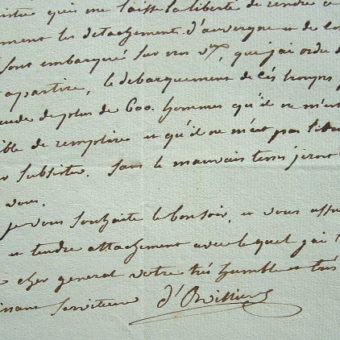 qui me laisse la liberté de rendre
les detachements d'auvergne et de
embarqué sur vos Vx, que j'ai ordre de
a partire, le debarquement de ces troupes
de plus de 600. hommes qu'il ne m'est
de remplire et qu'il ne m'est pas
subsister. sans le mauvais tems j'irois
vous.
je vous souhaite le bonsoir, et vous
et tendre attachement avec lequel j'ai
cher general votre trés humble et trés
serviteur d'Orvilliers